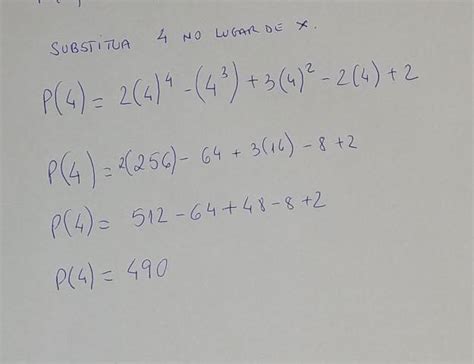 SUBSTITUA 4 NO LUGAR DE X.
P(4) = 2(4)⁴ - (4³) + 3(4)² - 2(4) + 2
P(4) = 2(256) - 64 + 3(16) - 8 + 2
P(4) = 512 - 64 + 48 - 8 + 2
P(4) = 490